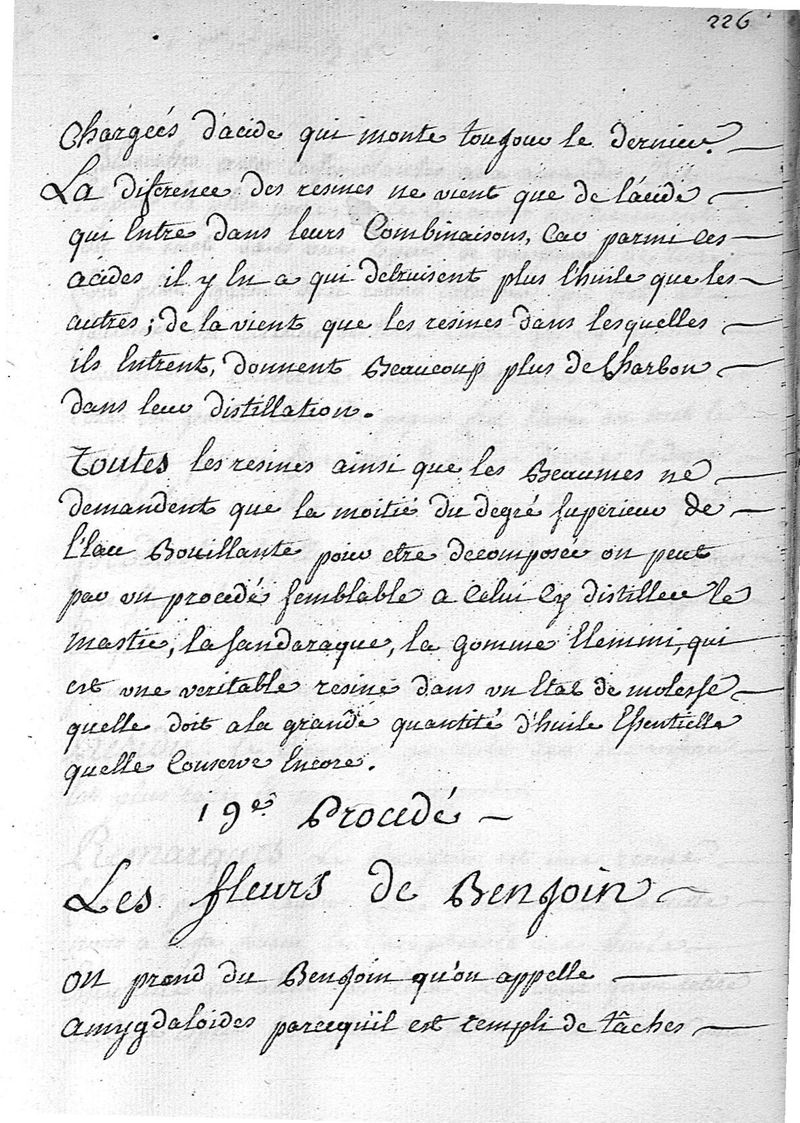 226
Chargeés d'acide qui monte toujour le dernier.
La diference des resines ne vient que de l'acide
qui Entre dans leurs Combinaisons, Car parmi ces
acides il y En a qui detruisent plus l'huile que les
autres; de la vient que les resines dans lesquelles
ils Entrent, donnent Beaucoup plus de Charbon
dans leur distillation.
Toutes les resines ainsi que les Beaumes ne
demandent que la moitié du degré superieur de
l'Eau Bouillante pour etre decomposee on peut
par un procedé semblable a Celui Cy distiller le
mastic, la sandaraque, la gomme Elemmi, qui
est une veritable resine dans un Etat de molesse
quelle doit a la grande quantité d'huile Essentielle
quelle Conserve Encore.
19e. Procedé
Les fleurs de Benjoin
on prend du Benjoin qu'on appelle
amygdaloides parcequ'il est rempli de tâches